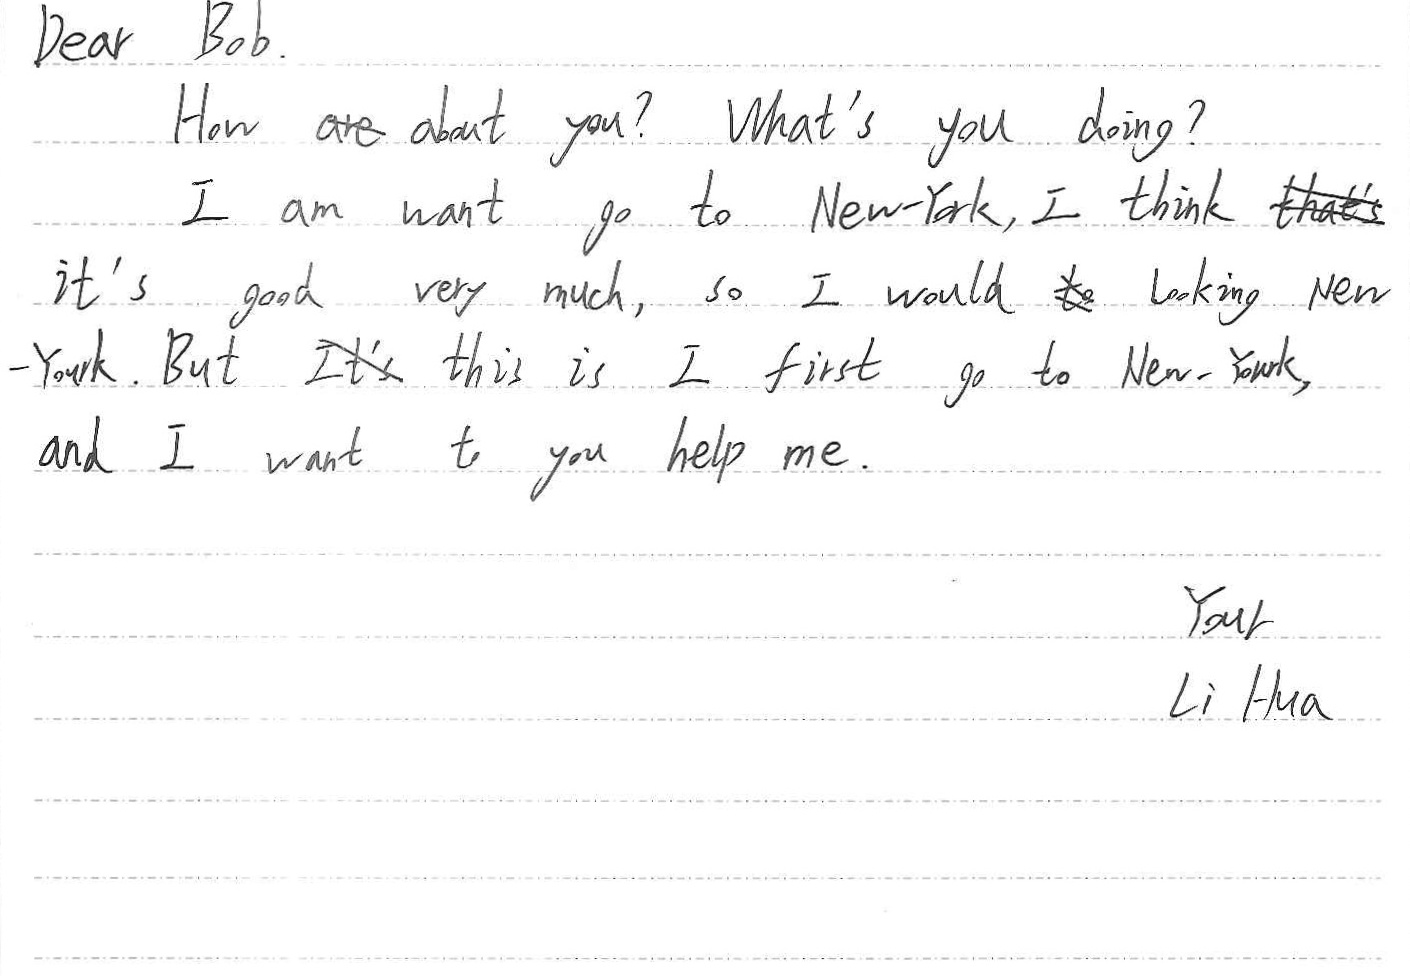 Dear Bob.
How are about you? What's you doing?
I am want go to New-York, I think that's
it's good very much, so I would to Looking New
-Yourk. But It's this is I first go to New-Yourk,
and I want to you help me.
Your
Li Hua